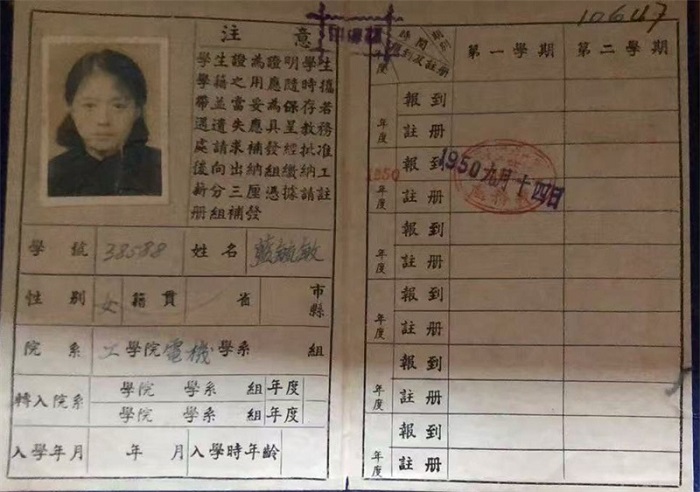 注意
學生證為證明學生
學籍之用應隨時攜
帶並當妥為保存若
遇遺失應具呈教務
處請求補發經批准
後向出納組繳納工
料分三厘憑據請註
冊組補發
學號 38588 姓名
性別 女 籍貫 省 市縣
院系 工學院電機學系 組
轉入院系 學院 學系 組 年度
學院 學系 組 年度
入學年月 年 月 入學時年齡
10647
時間
報到及註冊
年度
第一學期 第二學期
年度 報到
註冊
1950年度 報到
註冊
1950九月十四日
年度 報到
註冊
年度 報到
註冊
年度 報到
註冊
年度 報到
註冊